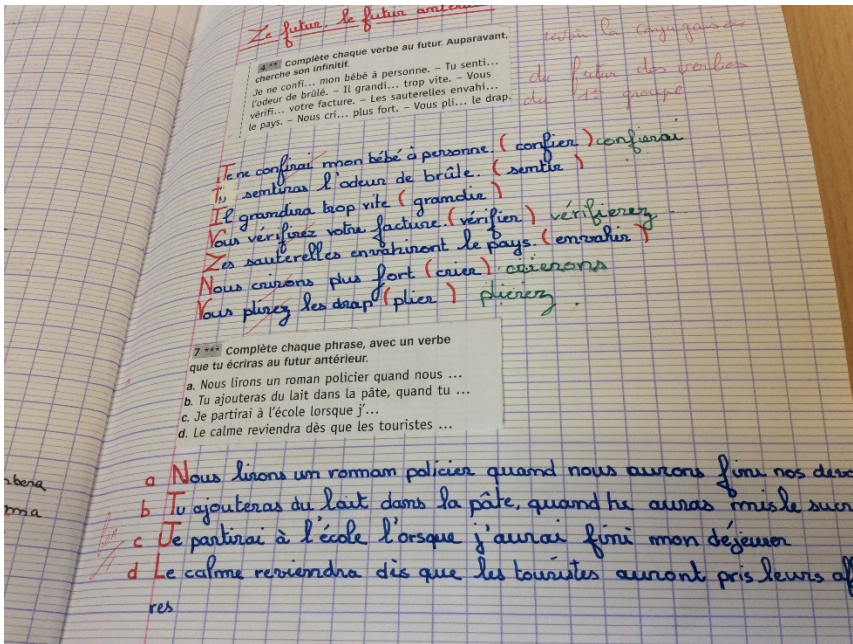 Le futur. le futur antérieur
4 ** Complète chaque verbe au futur. Auparavant,
cherche son infinitif.
Je ne confi... mon bébé à personne. – Tu senti...
l'odeur de brûlé. – Il grandi... trop vite. – Vous
vérifi... votre facture. – Les sauterelles envahi...
le pays. – Nous cri... plus fort. – Vous pli... le drap.
revoir la conjugaison
du futur des verbes
du 1er groupe
Je ne confirai mon bébé à personne. ( confier ) confierai
Tu sentiras l'odeur de brûle. ( sentir )
Il grandira trop vite ( grandir )
Vous vérifirez votre facture. ( vérifier ) vérifierez
Les sauterelles envahiront le pays. ( envahir )
Nous crirons plus fort ( crier ) crierons
Vous plirez les drap ( plier ) plierez.
7 *** Complète chaque phrase, avec un verbe
que tu écriras au futur antérieur.
a. Nous lirons un roman policier quand nous ...
b. Tu ajouteras du lait dans la pâte, quand tu ...
c. Je partirai à l'école lorsque j'...
d. Le calme reviendra dès que les touristes ...
a Nous lirons um romman policier quand nous aurons fini nos devo
b Tu ajouteras du lait dans la pâte, quand tu auras mis le sucr
c Je partirai à l'école l'orsque j'aurai fini mon déjeuner
d Le calme reviendra dis que les touristes auront pris leurs af
res